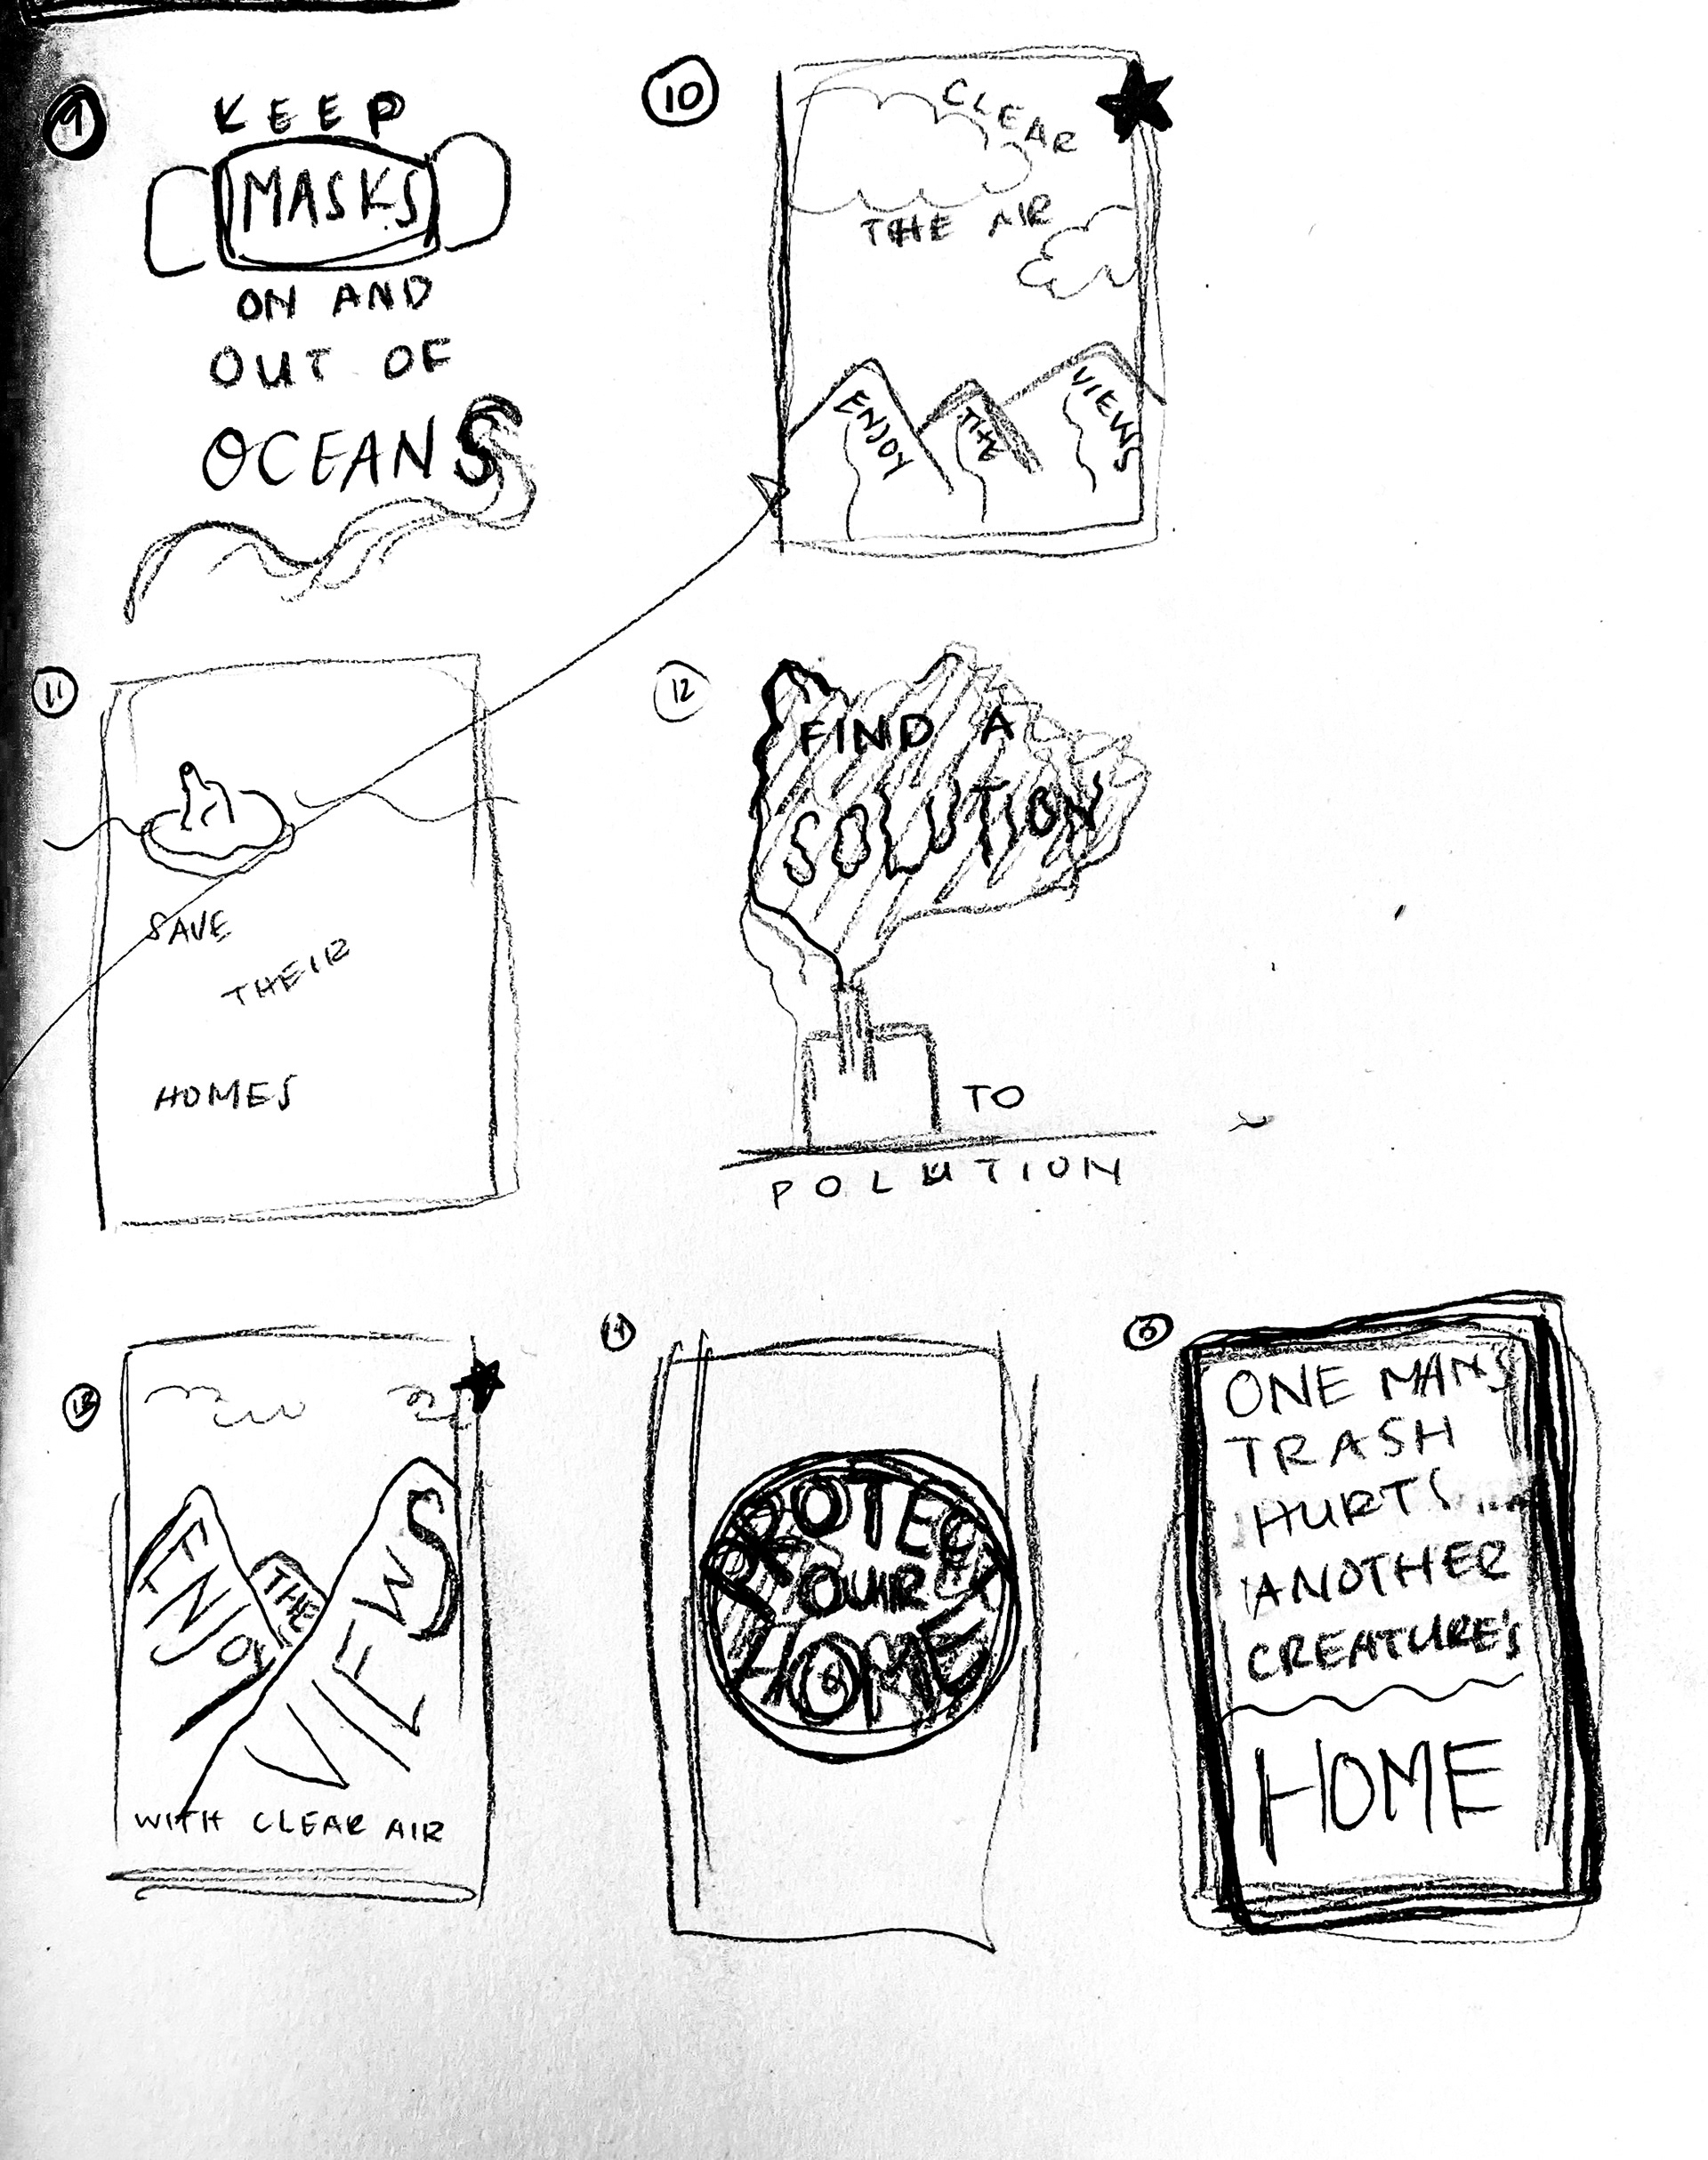 9
KEEP
MASKS
ON AND
OUT OF
OCEANS
10
CLEAR
THE AIR
ENJOY
THE
VIEWS
11
SAVE
THEIR
HOMES
12
FIND A
SOLUTION
TO
POLUTION
13
ENJOY
THE
VIEWS
WITH CLEAR AIR
14
PROTECT
OUR
HOME
ONE MANS
TRASH
HURTS...
ANOTHER
CREATURE'S
HOME